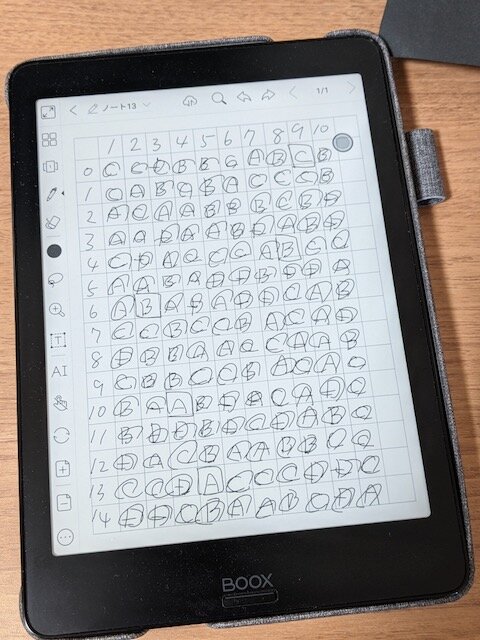 ノート13
1/1
1 2 3 4 5 6 7 8 9 10
0 C C D B B C A B C B
1 C A B C B A C C C B
2 A C A A B B B C B D
3 A A D A A B D A B D
4 C D A C C C A B C C
5 A A B A D D B D D A
6 A B A B A D D C A B
7 C C B C C B A C A D
8 D B B A A C C A A B
9 C B B C C B A C A C
10 B A A B D A C A D C
11 B D D B D C D A B C
12 D A C B A A B B C C
13 C C D A C C C D D C
14 D D C B A A B C D A
AI
BOOX